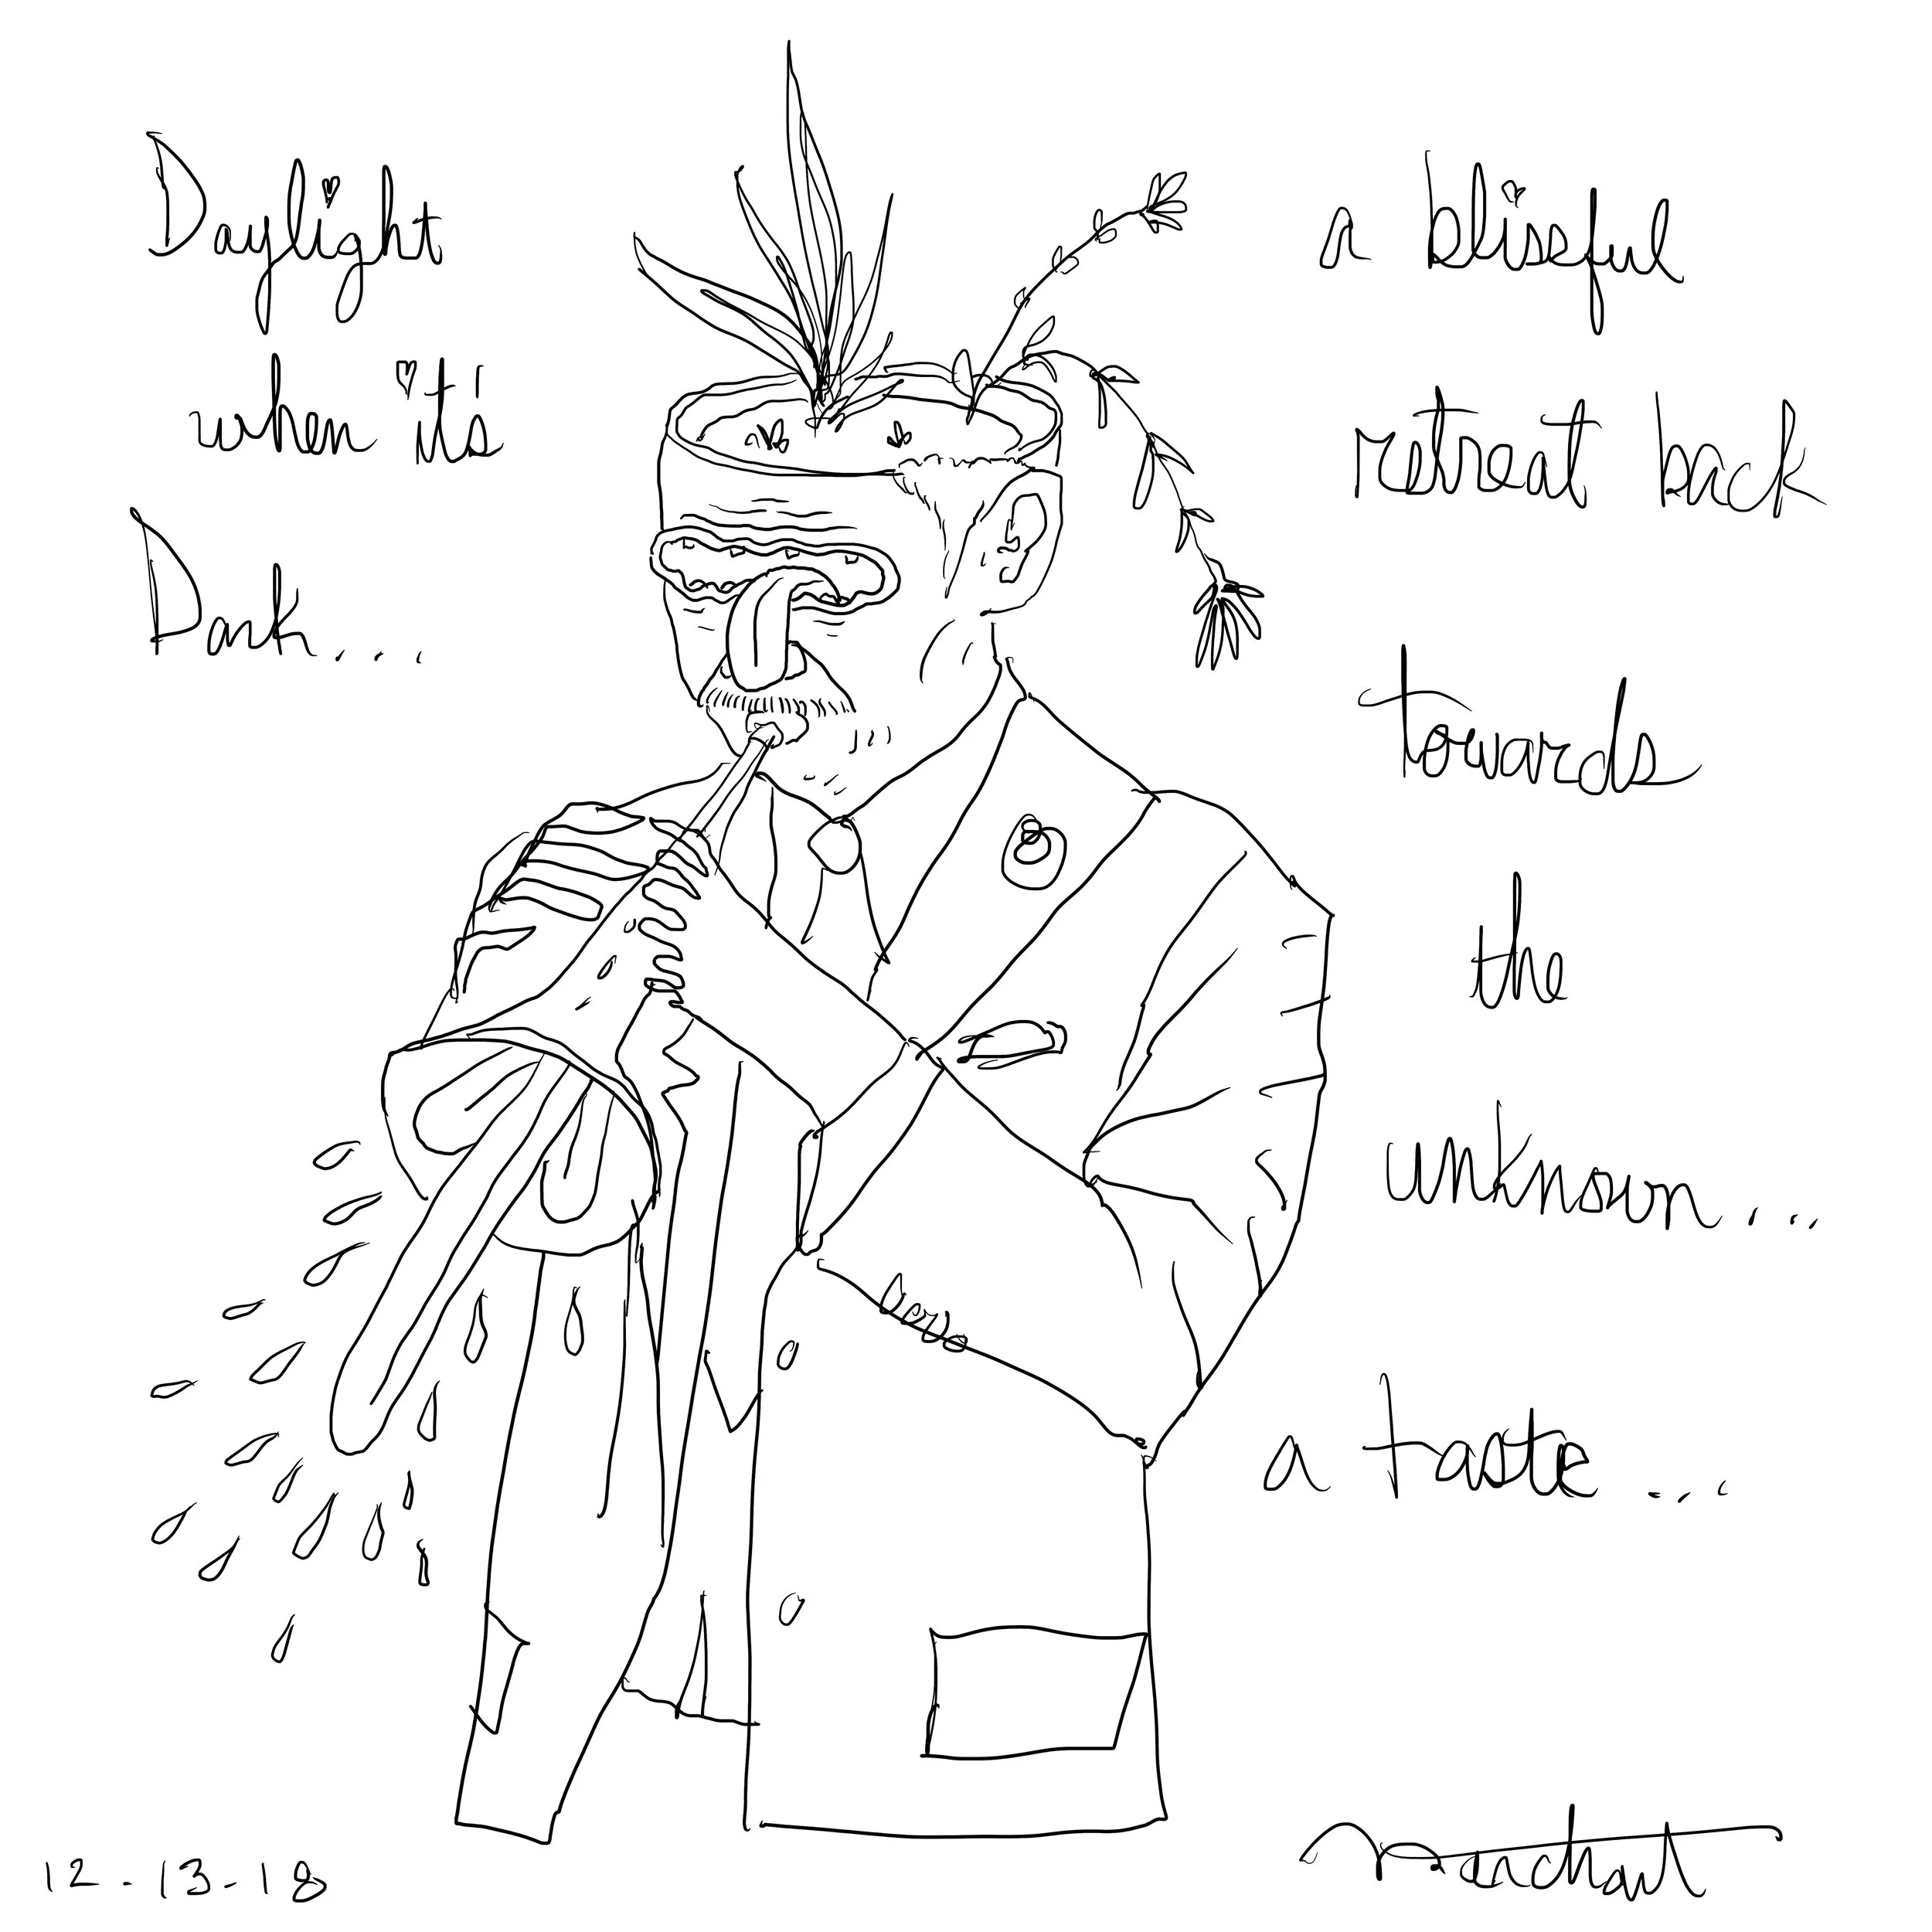 Daylight
when it's
Dark....
a blissful
retreat back
towards
the
unknown...
a taste...
12-13-18